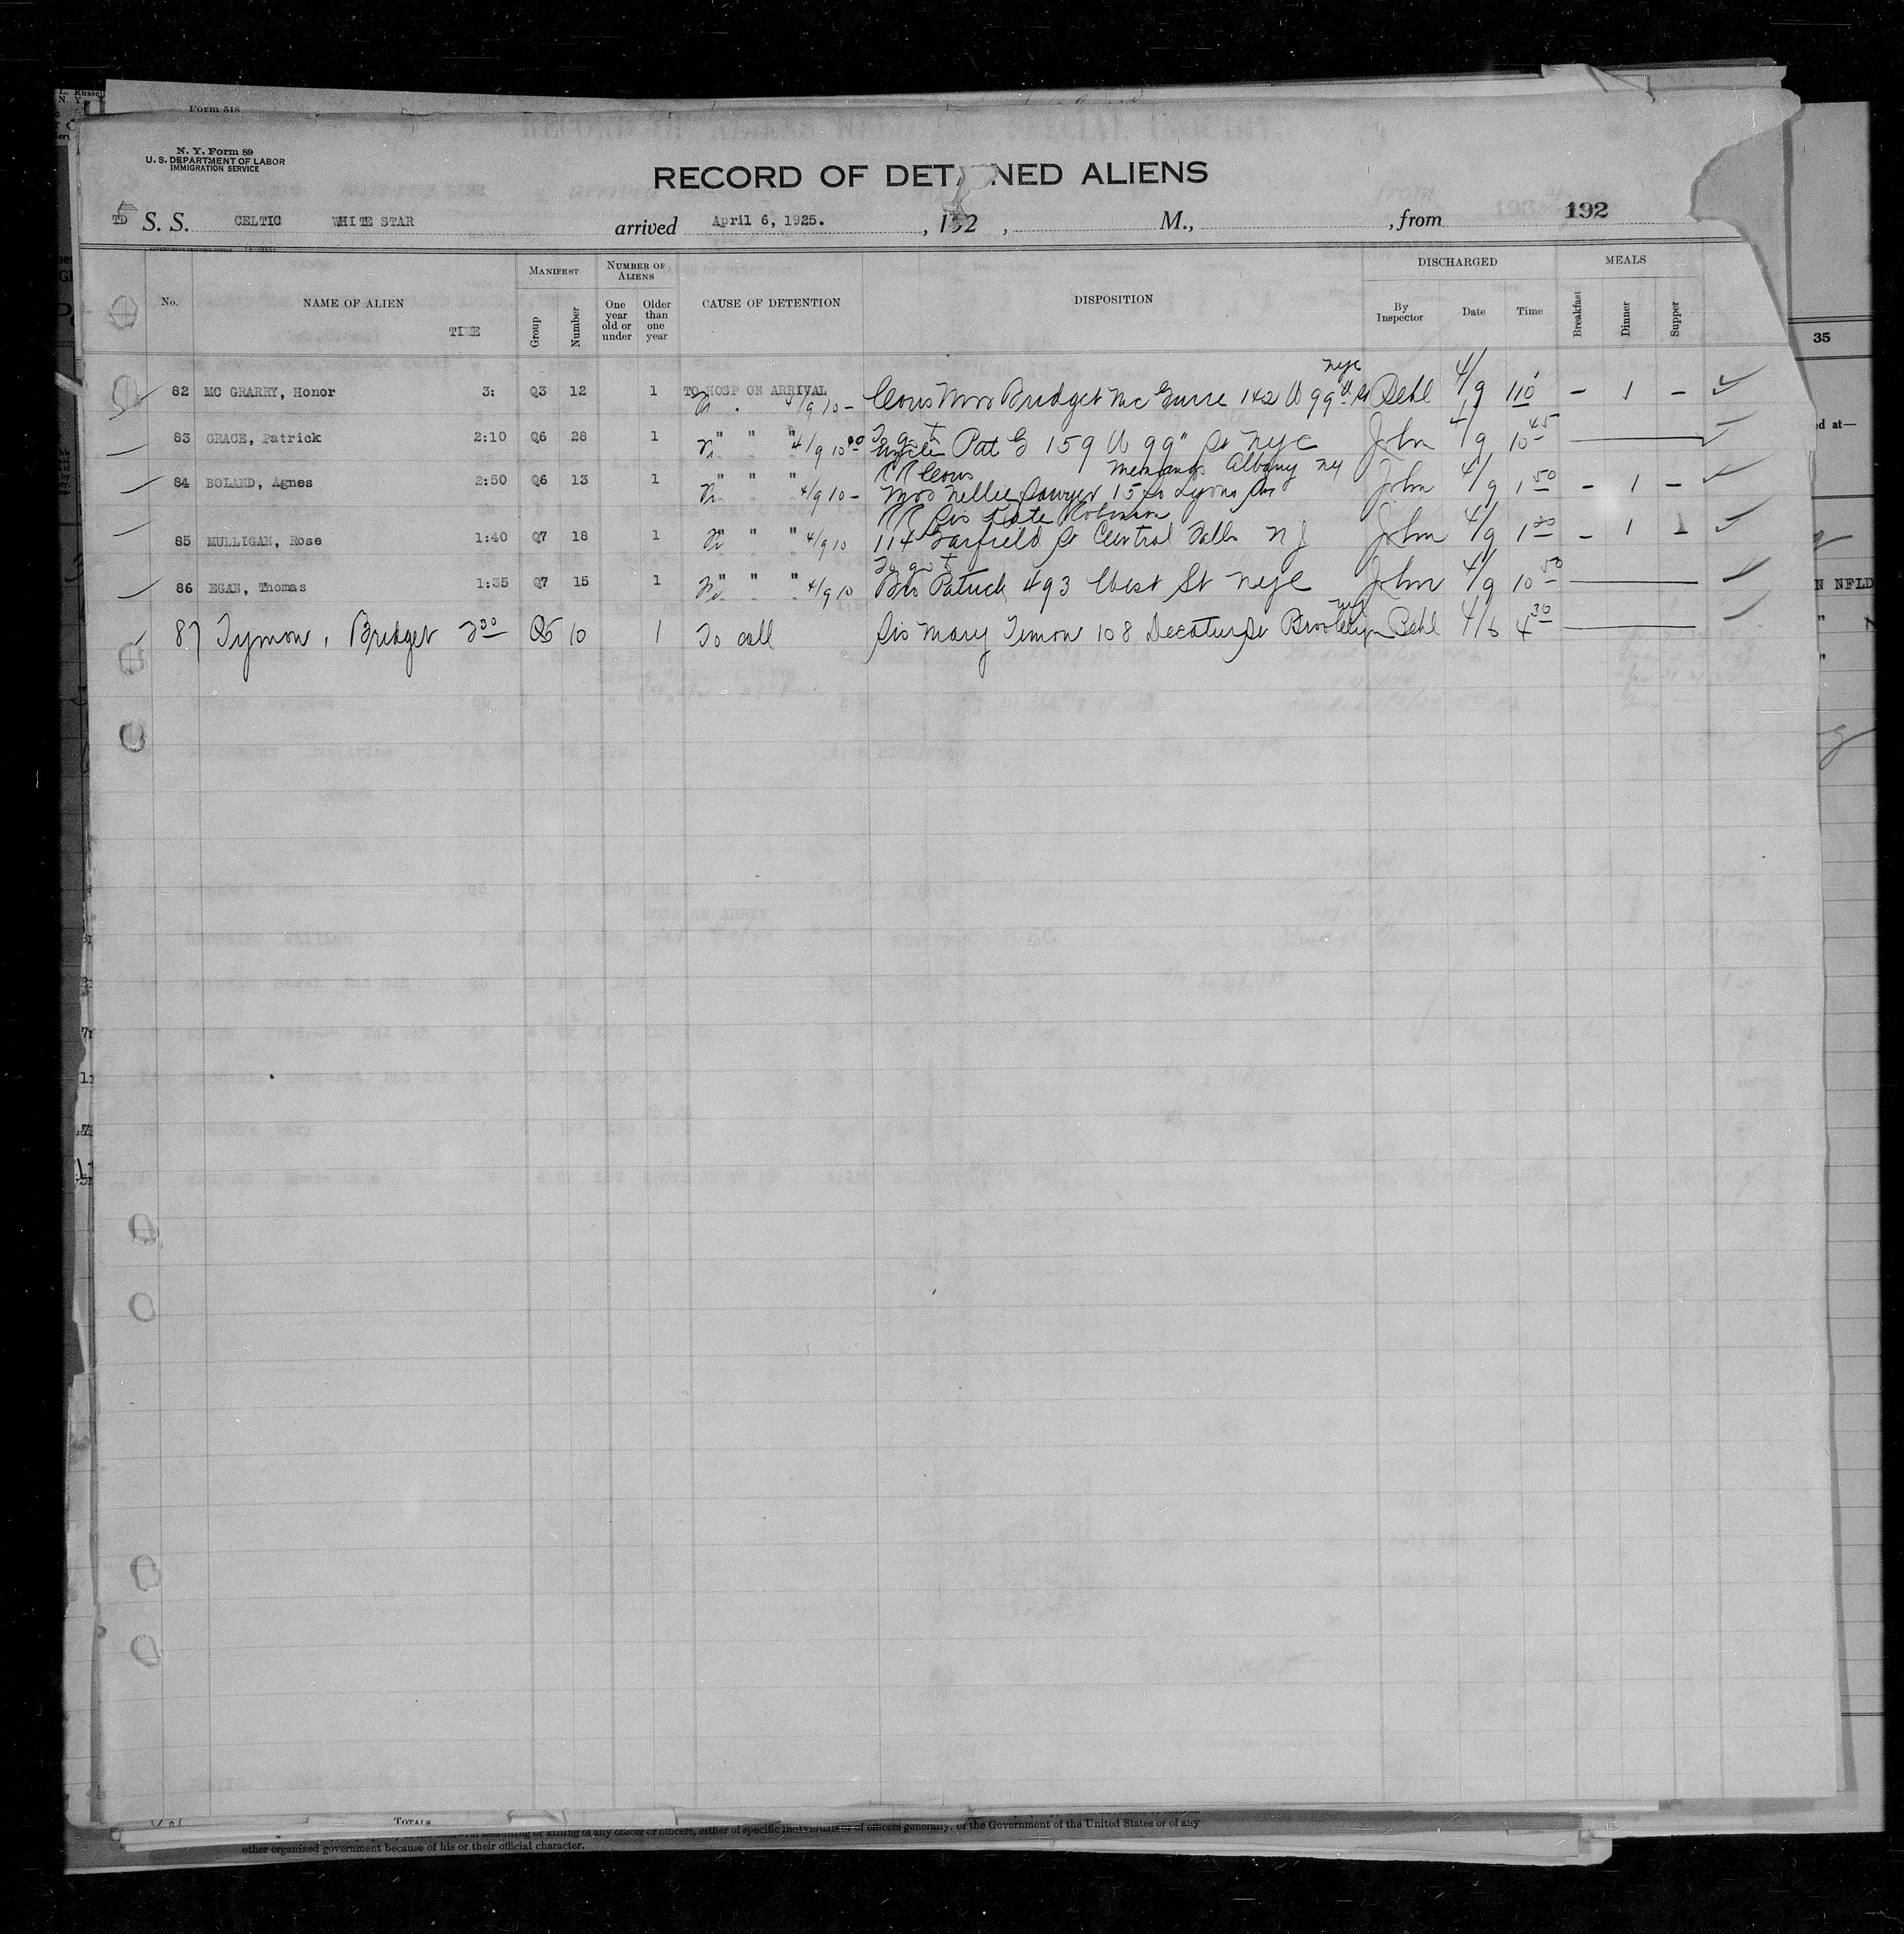 Form 518
N. Y. Form 89
U. S. DEPARTMENT OF LABOR
IMMIGRATION SERVICE
RECORD OF DETAINED ALIENS
TD S. S. CELTIC WHITE STAR arrived April 6, 1925. , 192 , M., , from 192
MANIFEST NUMBER OF ALIENS DISCHARGED MEALS
No. NAME OF ALIEN TIME Group Number One year old or under Older than one year CAUSE OF DETENTION DISPOSITION By Inspector Date Time Breakfast Dinner Supper
35
nyc
82 MC GRARRY, Honor 3: Q3 12 1 TO HOSP ON ARRIVAL 4/9 10 – Cous Mrs Bridget Mc 142 W 99th St Behl 4/9 1 10 – 1 –
To go t
83 GRACE, Patrick 2:10 Q6 28 1 " " " 4/9 10 00 Uncle Pat G 159 W 99" St nyc John 4/9 10 45
RR Cous Menands Albany ny
84 BOLAND, Agnes 2:50 Q6 13 1 " " " 4/9 10 – Mrs Nellie Sawyer 15 So Lyons Av John 4/9 1 50 – 1 –
RR Sis Kate Robinson
85 MULLIGAN, Rose 1:40 Q7 18 1 " " " 4/9 10 114 Garfield St Central Falls John 4/9 1 20 – 1 1
To go t
86 EGAN, Thomas 1:35 Q7 15 1 " " " 4/9 10 Bro Patrick 493 West St nyc John 4/9 10 50
87 Tymon, Bridget 2 30 Q5 10 1 To call Sis Mary Timon 108 Decatur St Brooklyn Behl 4/6 4 30
N NFLD
TOTALS
other organized government because of his or their official character.